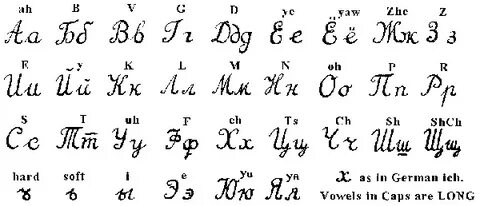 ah B V G D ye yaw Zhe Z
Аа Бб Вв Гг Ддд Ее Ёё Жж Зз
E y K L M N oh P R
Ии Йй Кк Лл Мм Нн Оо Пп Рр
S T uh F ch Ts Ch Sh ShCh
Сс Тт Уу Фф Хх Цц Чч Шш Щщ
hard soft i e yu ya
ъ ь ы Ээ Юю Яя x as in German ich.
Vowels in Caps are LONG